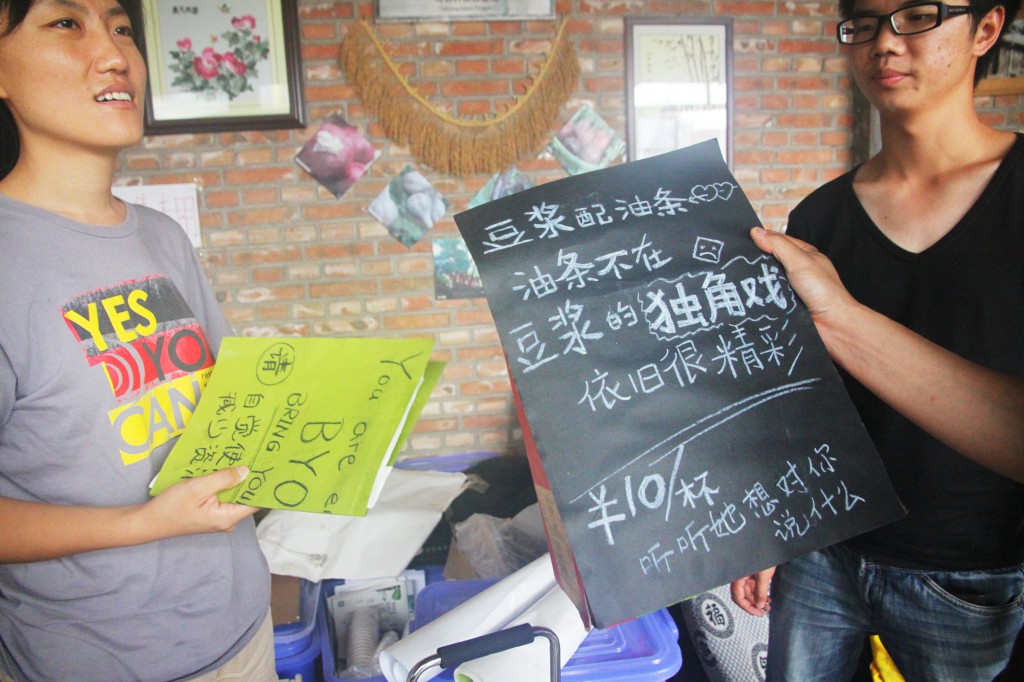 YES
DIYO
CAN
请
You are
BYO
BRING YOU
自觉使
减少
豆浆配油条
油条不在
豆浆的独角戏
依旧很精彩
¥10/杯
听听她想对你
说什么
福